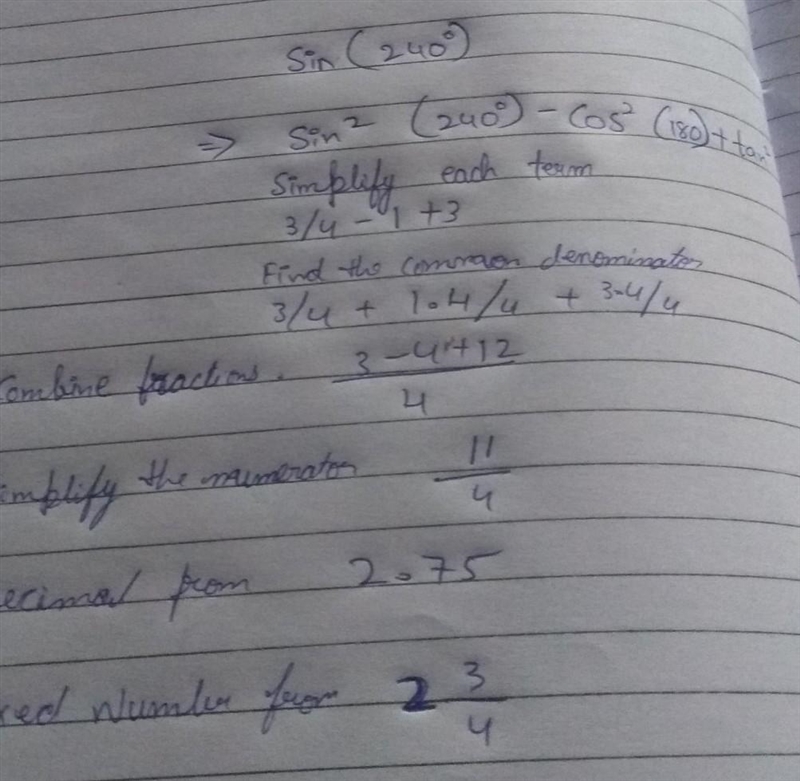 Sin (240°)
⇒ Sin² (240°) - Cos² (180) + tan²
Simplify each term
3/4 - 1 + 3
Find the common denominator
3/4 + 1.4/4 + 3.4/4
ombine fractions. 3 - 4 + 12 / 4
implify the numerator 11 / 4
ecimal from 2.75
xed Number from 2 3/4